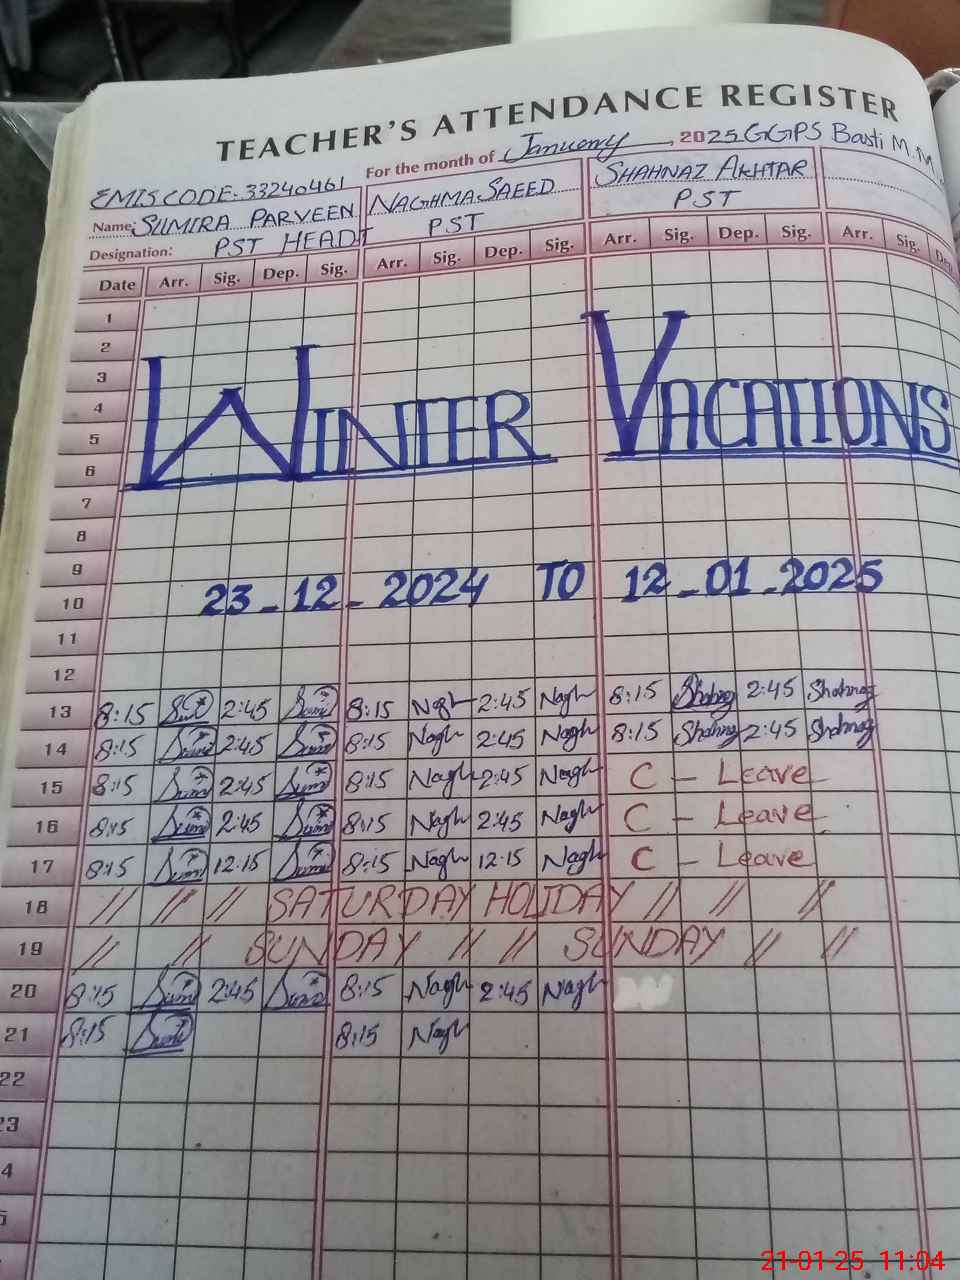 TEACHER'S ATTENDANCE REGISTER
For the month of January, 2025 GGPS Basti M.M
EMIS CODE-33240461
Name: SUMIRA PARVEEN NAGHMA SAEED SHAHNAZ AKHTAR
Designation: PST HEADT PST PST
Date Arr. Sig. Dep. Sig. Arr. Sig. Dep. Sig. Arr. Sig. Dep. Sig. Arr. Sig.
1
2
3
WINTER VACATIONS
4
5
6
7
8
9
23-12-2024 TO 12-01-2025
10
11
12
13 8:15 2:45 8:15 Nagh 2:45 Nagh 8:15 Shahnaz 2:45 Shahnaz
14 8:15 2:45 8:15 Nagh 2:45 Nagh 8:15 Shahnaz 2:45 Shahnaz
15 8:15 Sumi 2:45 Sumi 8:15 Nagh 2:45 Nagh C - Leave
16 8:15 Sumi 2:45 Sumi 8:15 Nagh 2:45 Nagh C - Leave
17 8:15 Sumi 12:15 Sumi 8:15 Nagh 12:15 Nagh C - Leave
18 // // // SATURDAY HOLIDAY // // //
19 // // SUNDAY // // SUNDAY // //
20 8:15 Sumi 2:45 Sumi 8:15 Nagh 2:45 Nagh
21 8:15 Sumi 8:15 Nagh
22
23
4
21-01-25 11:04